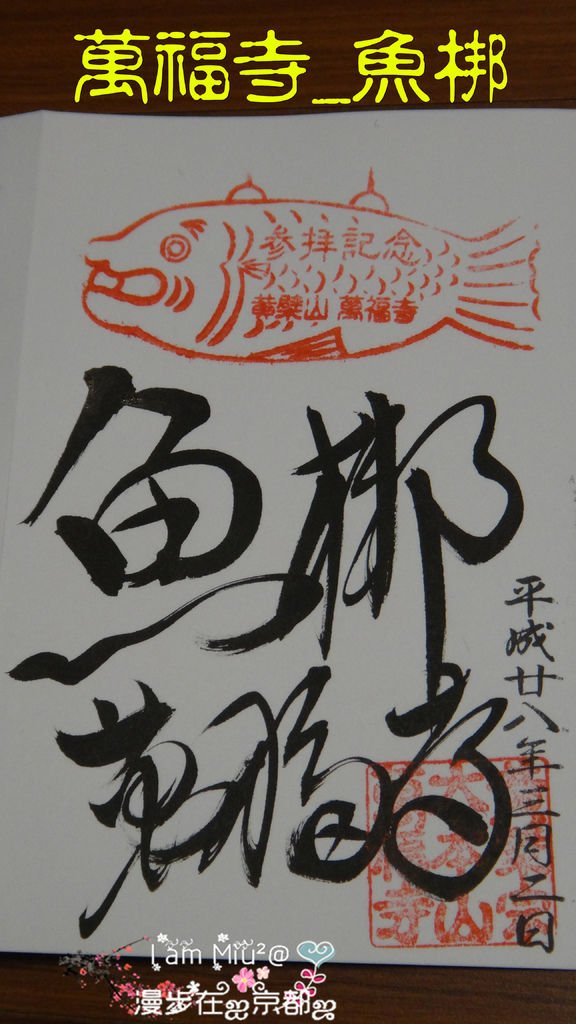 萬福寺_魚梆
參拝記念
黄檗山 萬福寺
魚梆
萬福寺
平成廿八年三月二日
I am Miu²@
漫步在 京都